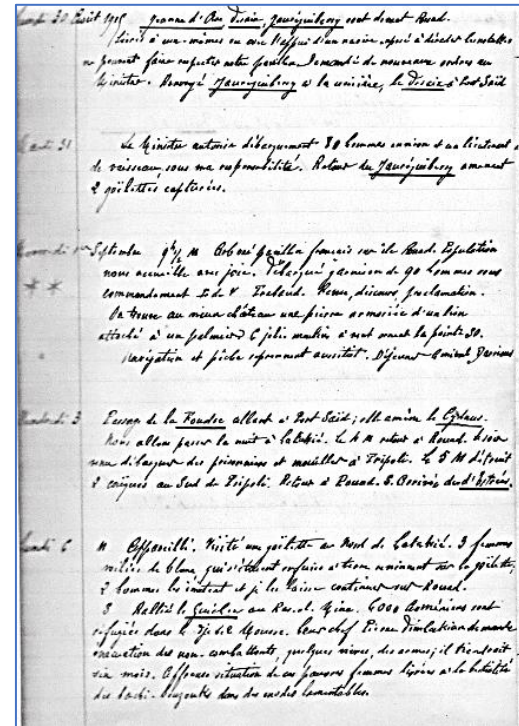 Lundi 30 Août 1915 Jeanne d'Arc, Desaix, Jauréguiberry sont devant Rouad.
à eux-mêmes ou avec l'appui d'un navire
ne pouvant faire respecter notre pavillon. Demandé de nouveaux ordres au
Ministre. Renvoyé Jauréguiberry à la croisière, le Desaix à Port Saïd
Mardi 31 Le Ministre autorise débarquement 80 hommes environ et un lieutenant
de vaisseau, sous ma responsabilité. Retour du Jauréguiberry amenant
2 goëlettes capturées.
Mercredi 1er Septembre 9h½ M Arboré pavillon français sur île Rouad. Population
nous accueille avec joie. Débarqué garnison de 90 hommes sous
commandement L. de V. Trabaud. Revue, discours, proclamation.
On trouve au vieux château une pierre armoriée d'un lion
attaché à un palmier. 6 jolis moulins à vent ornent la pointe SO.
Navigation et pêche reprennent aussitôt. Déjeuner Amiral Darrieus
Vendredi 3 Passage de la Foudre allant à Port Saïd; elle amène le
Nous allons passer la nuit à Latakié. Le 4 M retour à Rouad. Le soir
venu débarquer des prisonniers et mouiller à Tripoli. Le 5 M détruit
2 au Sud de Tripoli. Retour à Rouad. S. Arrivée du d'Estrées.
Lundi 6 M Appareillé. Visité une goëlette au Nord de Latakié. 3 femmes
voilées de blanc qui s'étaient enfuies à terre reviennent sur la goëlette;
2 hommes les imitent et je les laisse continuer sur Rouad.
S Rallié le Guichen au Ras el Mine. 6000 Arméniens sont
réfugiés dans le Djebel Mousse. Leur chef Pierre Dimlakian demande
évacuation des non-combattants, quelques vivres, des armes; il tiendrait
six mois. Affreuse situation de ces pauvres femmes livrées à la bestialité
des bachi-bouzouks dans des exodes lamentables.